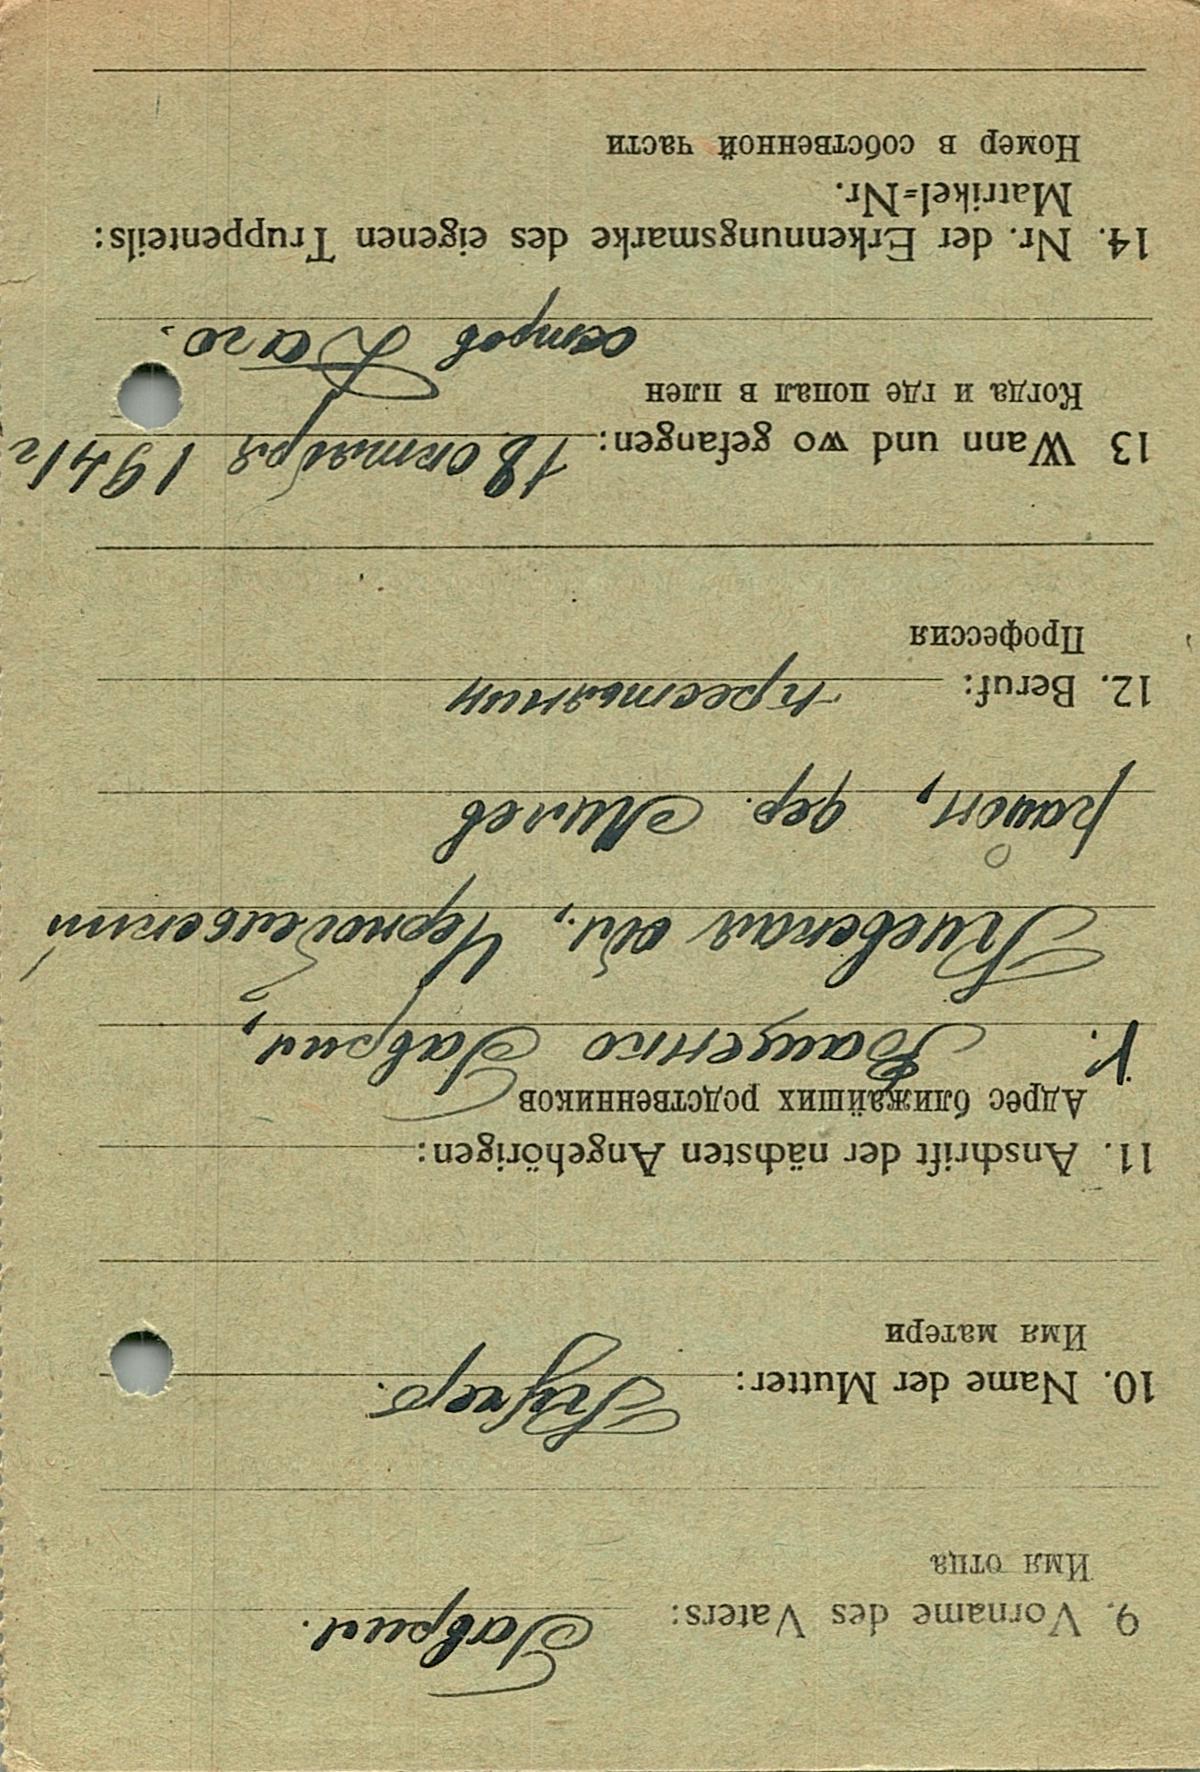 9. Vorname des Vaters: Гаврил.
Имя отца
10. Name der Mutter:
Имя матери
11. Anschrift der nächsten Angehörigen:
Адрес ближайших родственников
Ващенко Гаврил,
Киевская обл., Чернобельский
район, дер. Милев
12. Beruf: крестьянин
Профессия
13 Wann und wo gefangen: 18 октября 1941 г
Когда и где попал в плен
остров Даго.
14. Nr. der Erkennungsmarke des eigenen Truppenteils:
Matrikel=Nr.
Номер в собственной части